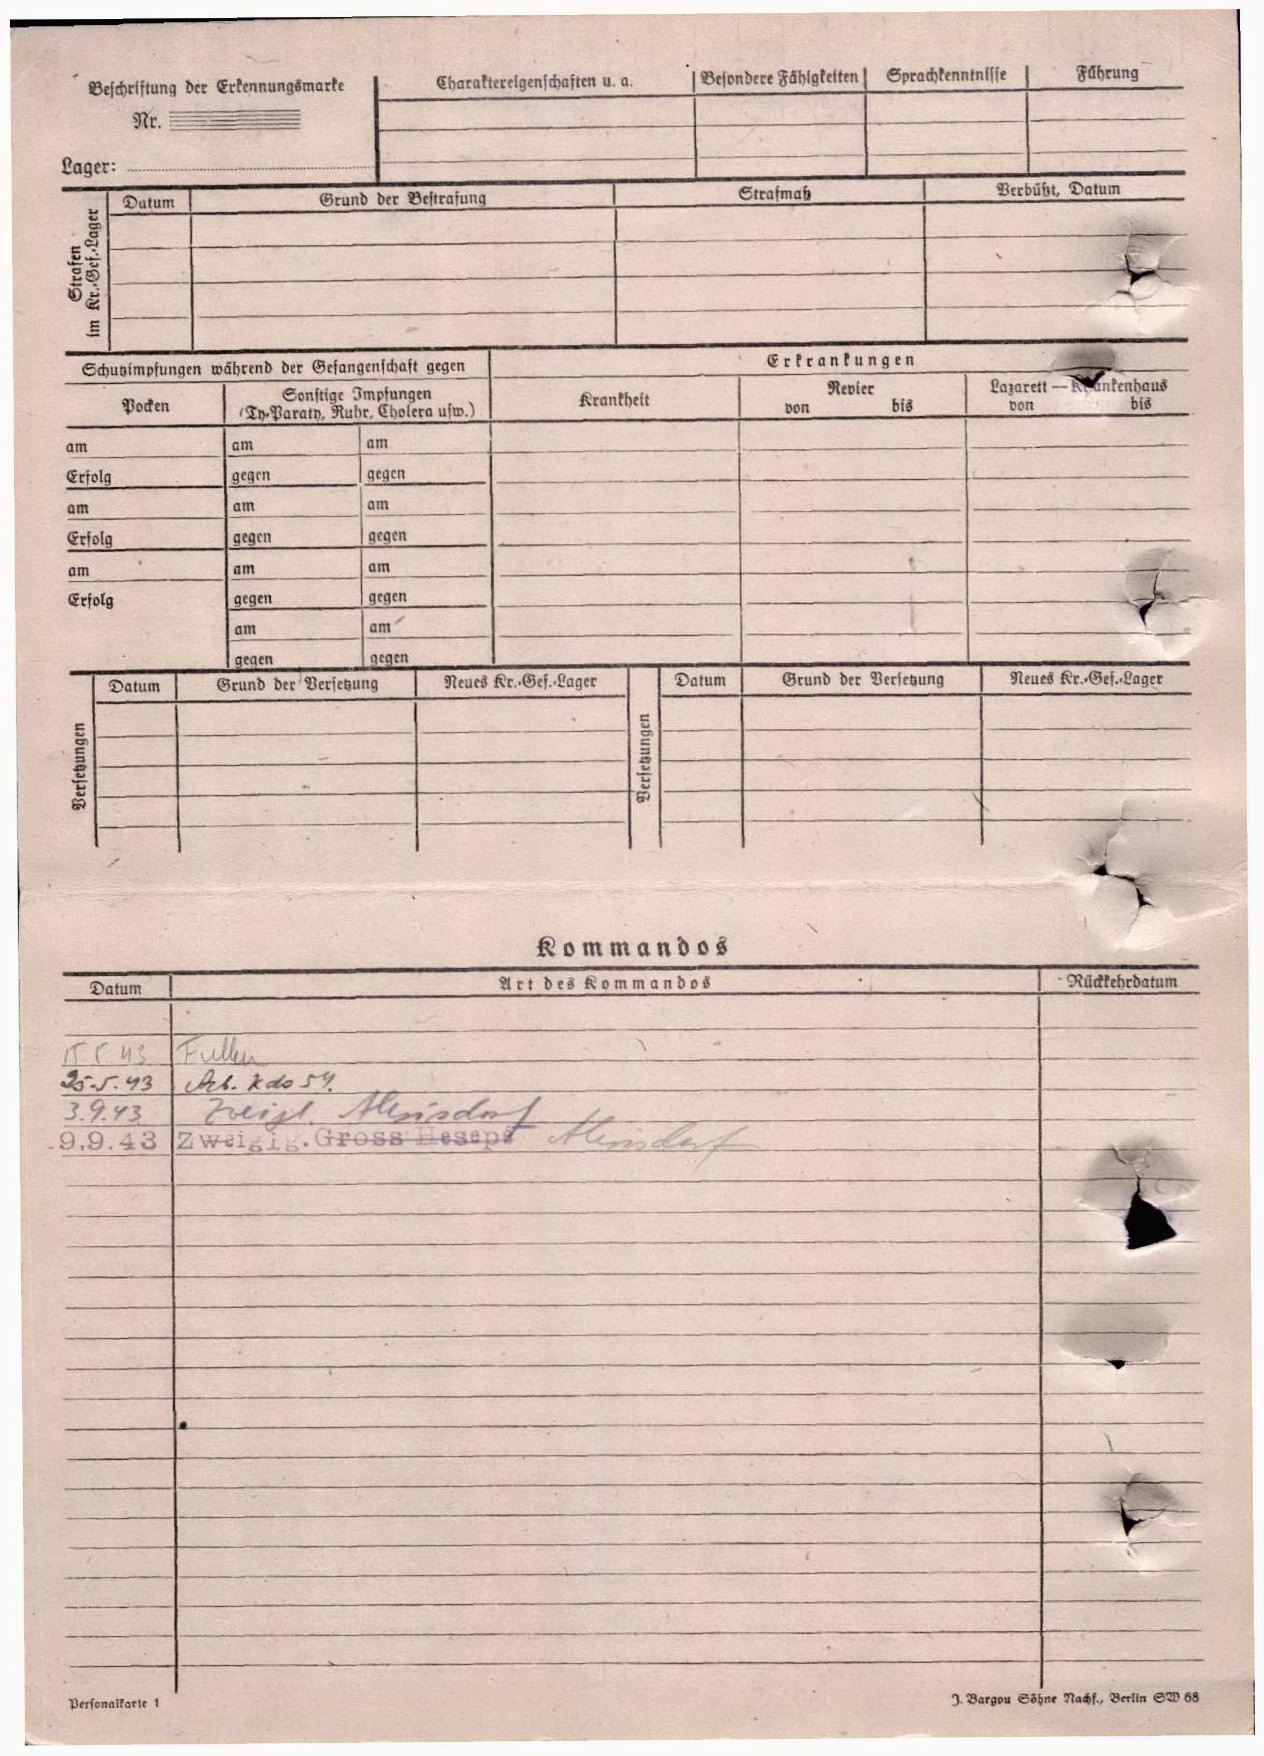 Beschriftung der Erkennungsmarke
Nr.
Lager:
Charaktereigenschaften u. a. Besondere Fähigkeiten Sprachkenntnisse Führung
Strafen im Kr.-Gef.-Lager
Datum Grund der Bestrafung Strafmaß Verbüßt, Datum
Schutzimpfungen während der Gefangenschaft gegen Erkrankungen
Pocken Sonstige Impfungen (Ty-Paraty, Ruhr, Cholera usw.) Krankheit Revier von bis Lazarett — Krankenhaus von bis
am am am
Erfolg gegen gegen
am am am
Erfolg gegen gegen
am am am
Erfolg gegen gegen
am am
gegen gegen
Versetzungen Datum Grund der Versetzung Neues Kr.-Gef.-Lager Versetzungen Datum Grund der Versetzung Neues Kr.-Gef.-Lager
Kommandos
Datum Art des Kommandos Rückkehrdatum
Fullen
25.5.43 Arb. Kdo 54.
3.9.43 Zweigl.
9.9.43 Zweiglg. Gross Hesepe
Personalkarte 1 J. Bargou Söhne Nachf., Berlin SW 68